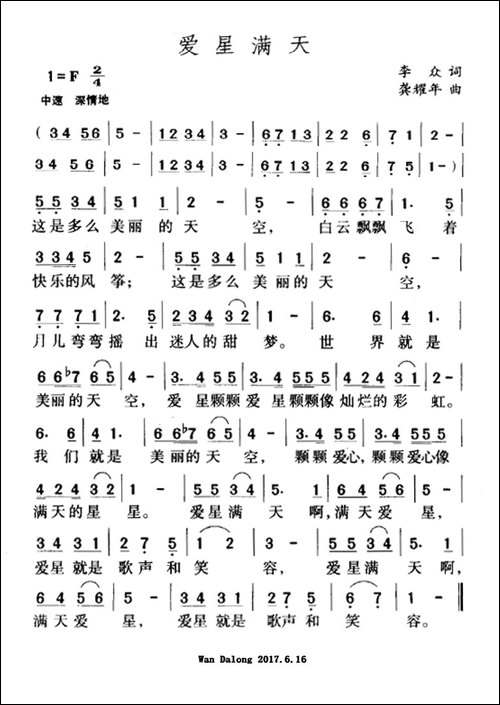 爱星满天
1=F 2/4
李 众 词
中速 深情地
龚耀年 曲
( 34 56 | 5 - | 1234 | 3 - | 6713 | 22 6 | 7 1 | 2 - |
34 56 | 5 - | 1234 | 3 - | 6713 | 22 6 | 7 5 | 1 - ) |
55 34 | 51 1 | 2 - | 5 - | 66 67 | 1. 5 |
这是多么 美丽 的 天 空, 白云飘飘 飞 着
3345 | 2 - | 55 34 | 51 1 | 2 - | 6 - |
快乐的风 筝; 这是多么 美丽的 天 空,
77 71 | 2. 5 | 234 32 | 2 - | 6. 6 | 4 1 |
月儿弯弯摇 出 迷人的甜 梦。 世 界就是
66♭7 65 | 4 - | 3. 455 | 3. 4555 | 424 31 | 2 - |
美丽的天 空, 爱 星颗颗爱 星颗颗像 灿烂的彩 虹。
6. 6 | 4 1. | 66♭7 65 | 4 - | 3. 4 55 | 3. 4 555 |
我 们 就是 美丽的天 空, 颗颗 爱心, 颗颗爱心像
424 32 | 1 - | 5534 | 5. 1 | 64 56 | 5 - |
满天的星 星。 爱星满 天 啊,满天爱 星,
34 31 | 27 5 | 1 2 | 3 - | 5534 | 5. 1 |
爱星就是 歌声 和 笑 容, 爱星满 天 啊,
64 56 | 5 - | 34 31 | 27 5 | 1 2 | 1 - ‖
满天爱 星, 爱星 就是 歌声 和 笑 容。
Wan Dalong 2017.6.16